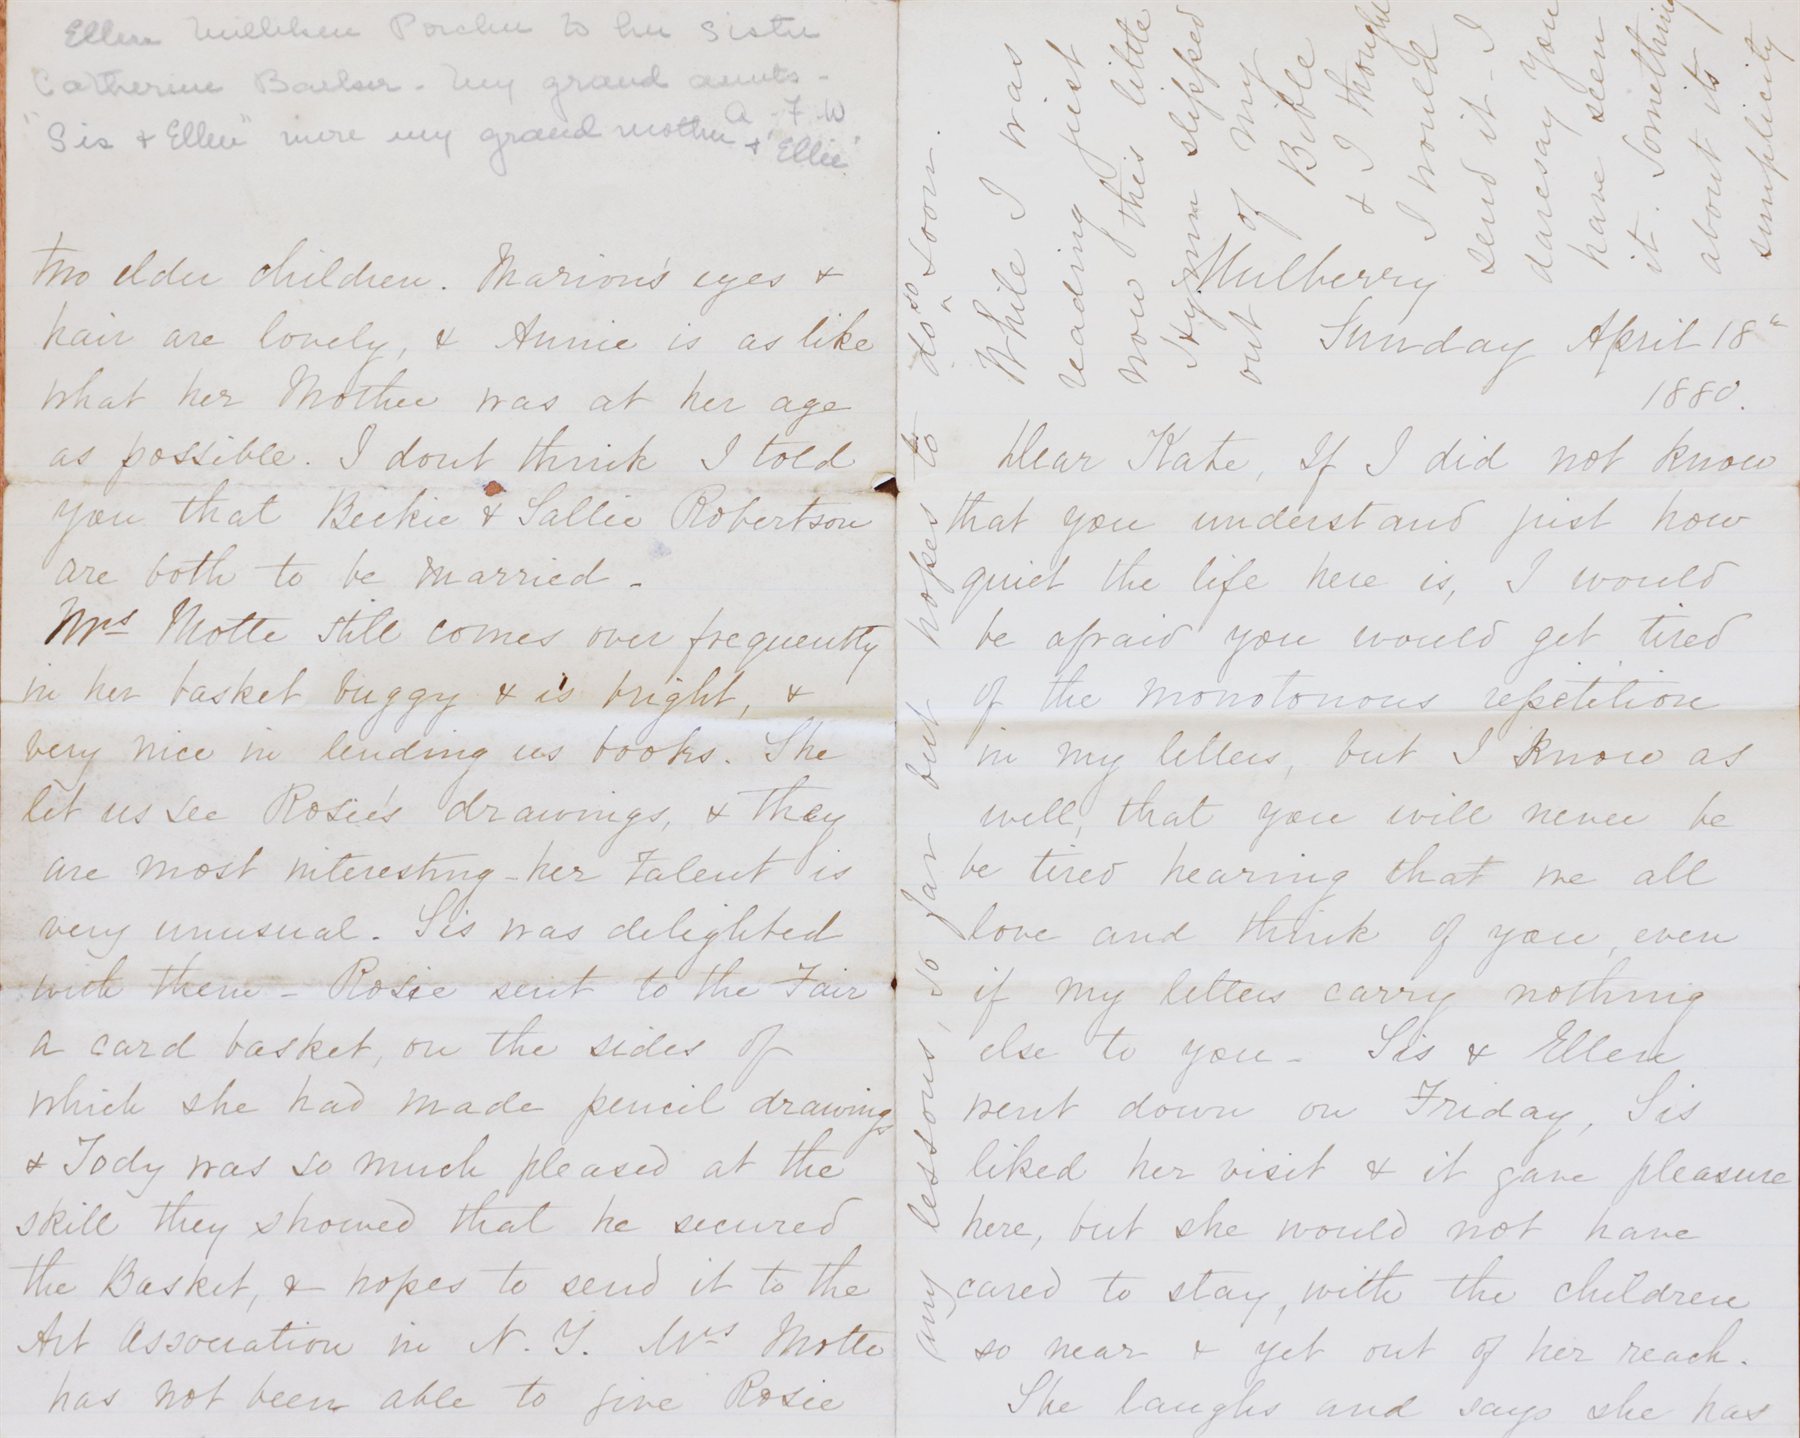 Ellen Milliken Porcher to her sister
Catherine Barker - my grand aunts -
"Sis & Ellen" were my grand mother & "Ellie"
A. F. W
two elder children. Marion's eyes &
hair are lovely, & Annie is as like
what her Mother was at her age
as possible. I dont think I told
you that Beckie & Sallie Robertson
are both to be married -
Mrs Motte still comes over frequently
in her basket buggy & is bright, &
very nice in lending us books. She
let us see Rosie's drawings, & they
are most interesting - her talent is
very unusual. Sis was delighted
with them - Rosie sent to the Fair
a card basket, on the sides of
which she had made pencil drawings
& Tody was so much pleased at the
skill they showed that he secured
the Basket, & hopes to send it to the
Art Association in N. Y. Mrs Motte
has not been able to give Rosie
any lessons, so far but hopes to do so soon.
While I was
reading just
now this little
Hymn slipped
out of my
Bible
& I thought
I would
send it - I
daresay you
have seen
it. Something
about its
simplicity
Mulberry
Sunday April 18"
1880.
Dear Kate, If I did not know
that you understand just how
quiet the life here is, I would
be afraid you would get tired
of the monotonous repetition
in my letters, but I know as
well, that you will never be
be tired hearing that we all
love and think of you, even
if my letters carry nothing
else to you - Sis & Ellen
went down on Friday, Sis
liked her visit & it gave pleasure
here, but she would not have
cared to stay, with the children
so near & yet out of her reach.
She laughs and says she has